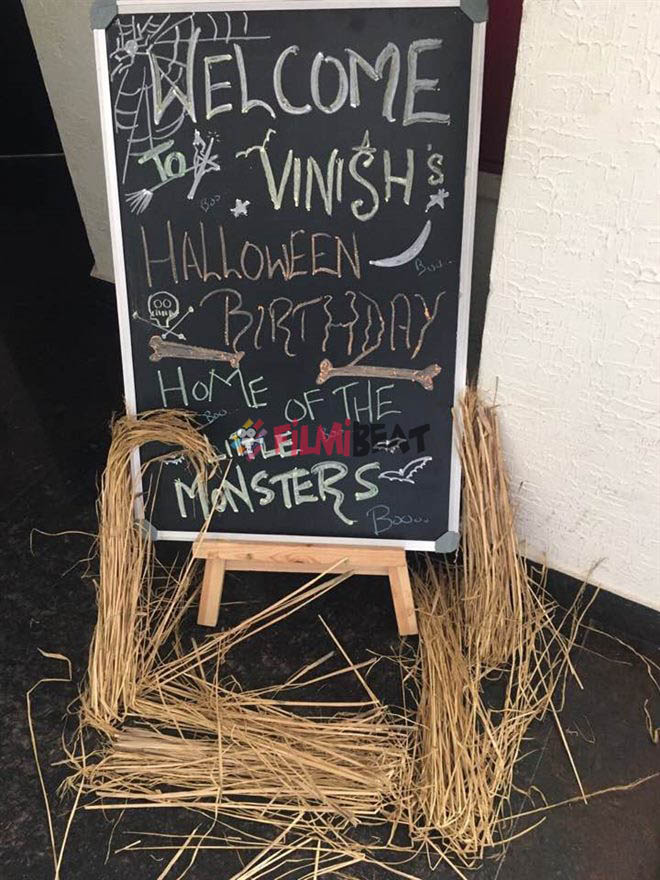 WELCOME
TO VINISH's
Boo
HALLOWEEN
Boo..
BIRTHDAY
HOME OF THE
Boo...
LITTLE
FiLMiBEAT
MONSTERS
Boooo...